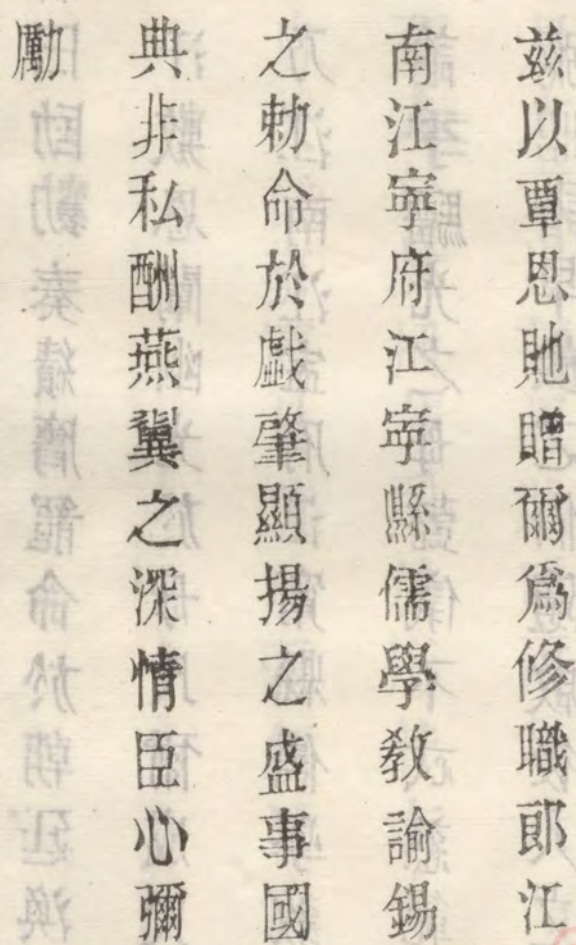 兹以覃恩貤贈爾爲修職郎江
南江寧府江寧縣儒學教諭錫
之勅命於戲肇顯揚之盛事國
典非私酬燕冀之深情臣心彌
勵